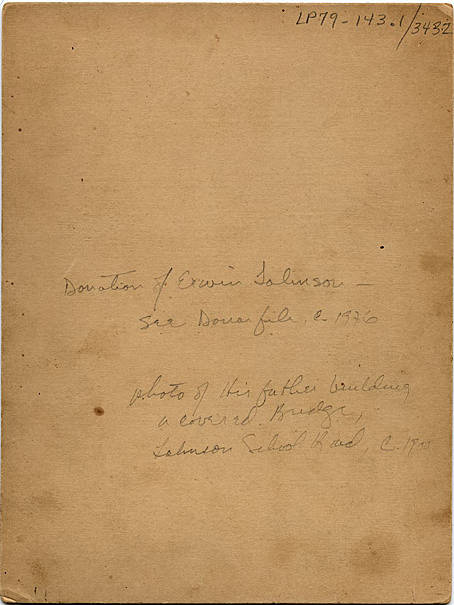 LP79-143.1/3432
Donation of Erwin Johnson –
See Donor file, c. 1976
photo of His father building
a covered Bridge,
Johnson School Road, c. 19